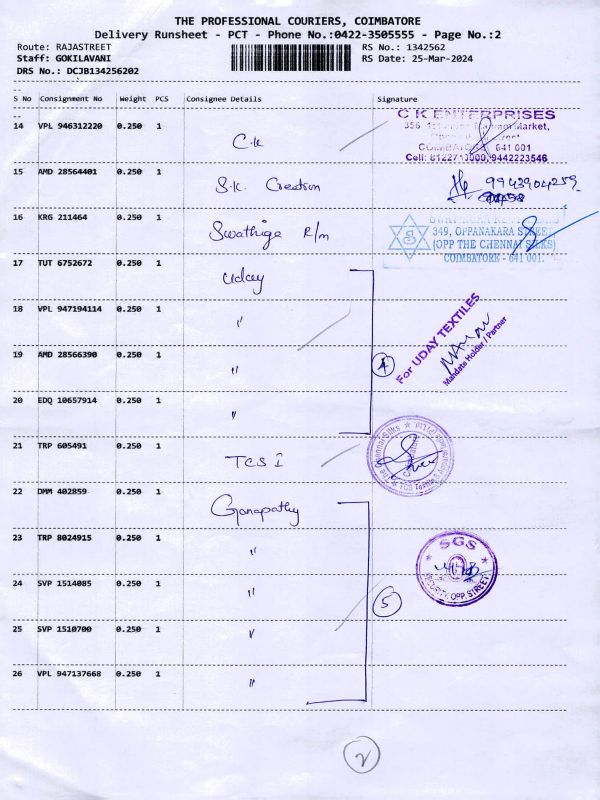 THE PROFESSIONAL COURIERS, COIMBATORE
Delivery Runsheet - PCT - Phone No.:0422-3505555 - Page No.:2
Route: RAJASTREET RS No.: 1342562
Staff: GOKILAVANI RS Date: 25-Mar-2024
DRS No.: DCJB134256202
S No Consignment No Weight PCS Consignee Details Signature
14 VPL 946312220 0.250 1 C.K
C K ENTERPRISES
COIMBATORE 641 001
15 AMD 28564401 0.250 1 S.K. Creation 9943904259
16 KRG 211464 0.250 1 Swathige R/m
349, OPPANAKARA STREET
(OPP THE CHENNAI SILKS)
COIMBATORE - 641 001.
17 TUT 6752672 0.250 1 Uday
18 VPL 947194114 0.250 1 "
For UDAY TEXTILES
Mandate Holder / Partner
19 AMD 28566390 0.250 1 " 4
20 EDQ 10657914 0.250 1 "
21 TRP 605491 0.250 1 TCS I
The Chennai Silks
TCS Textile
22 DMM 402859 0.250 1 Ganapathy
23 TRP 8024915 0.250 1 "
SGS
SECURITY, OPP. STREET
24 SVP 1514085 0.250 1 " 5
25 SVP 1510700 0.250 1 "
26 VPL 947137668 0.250 1 "
2